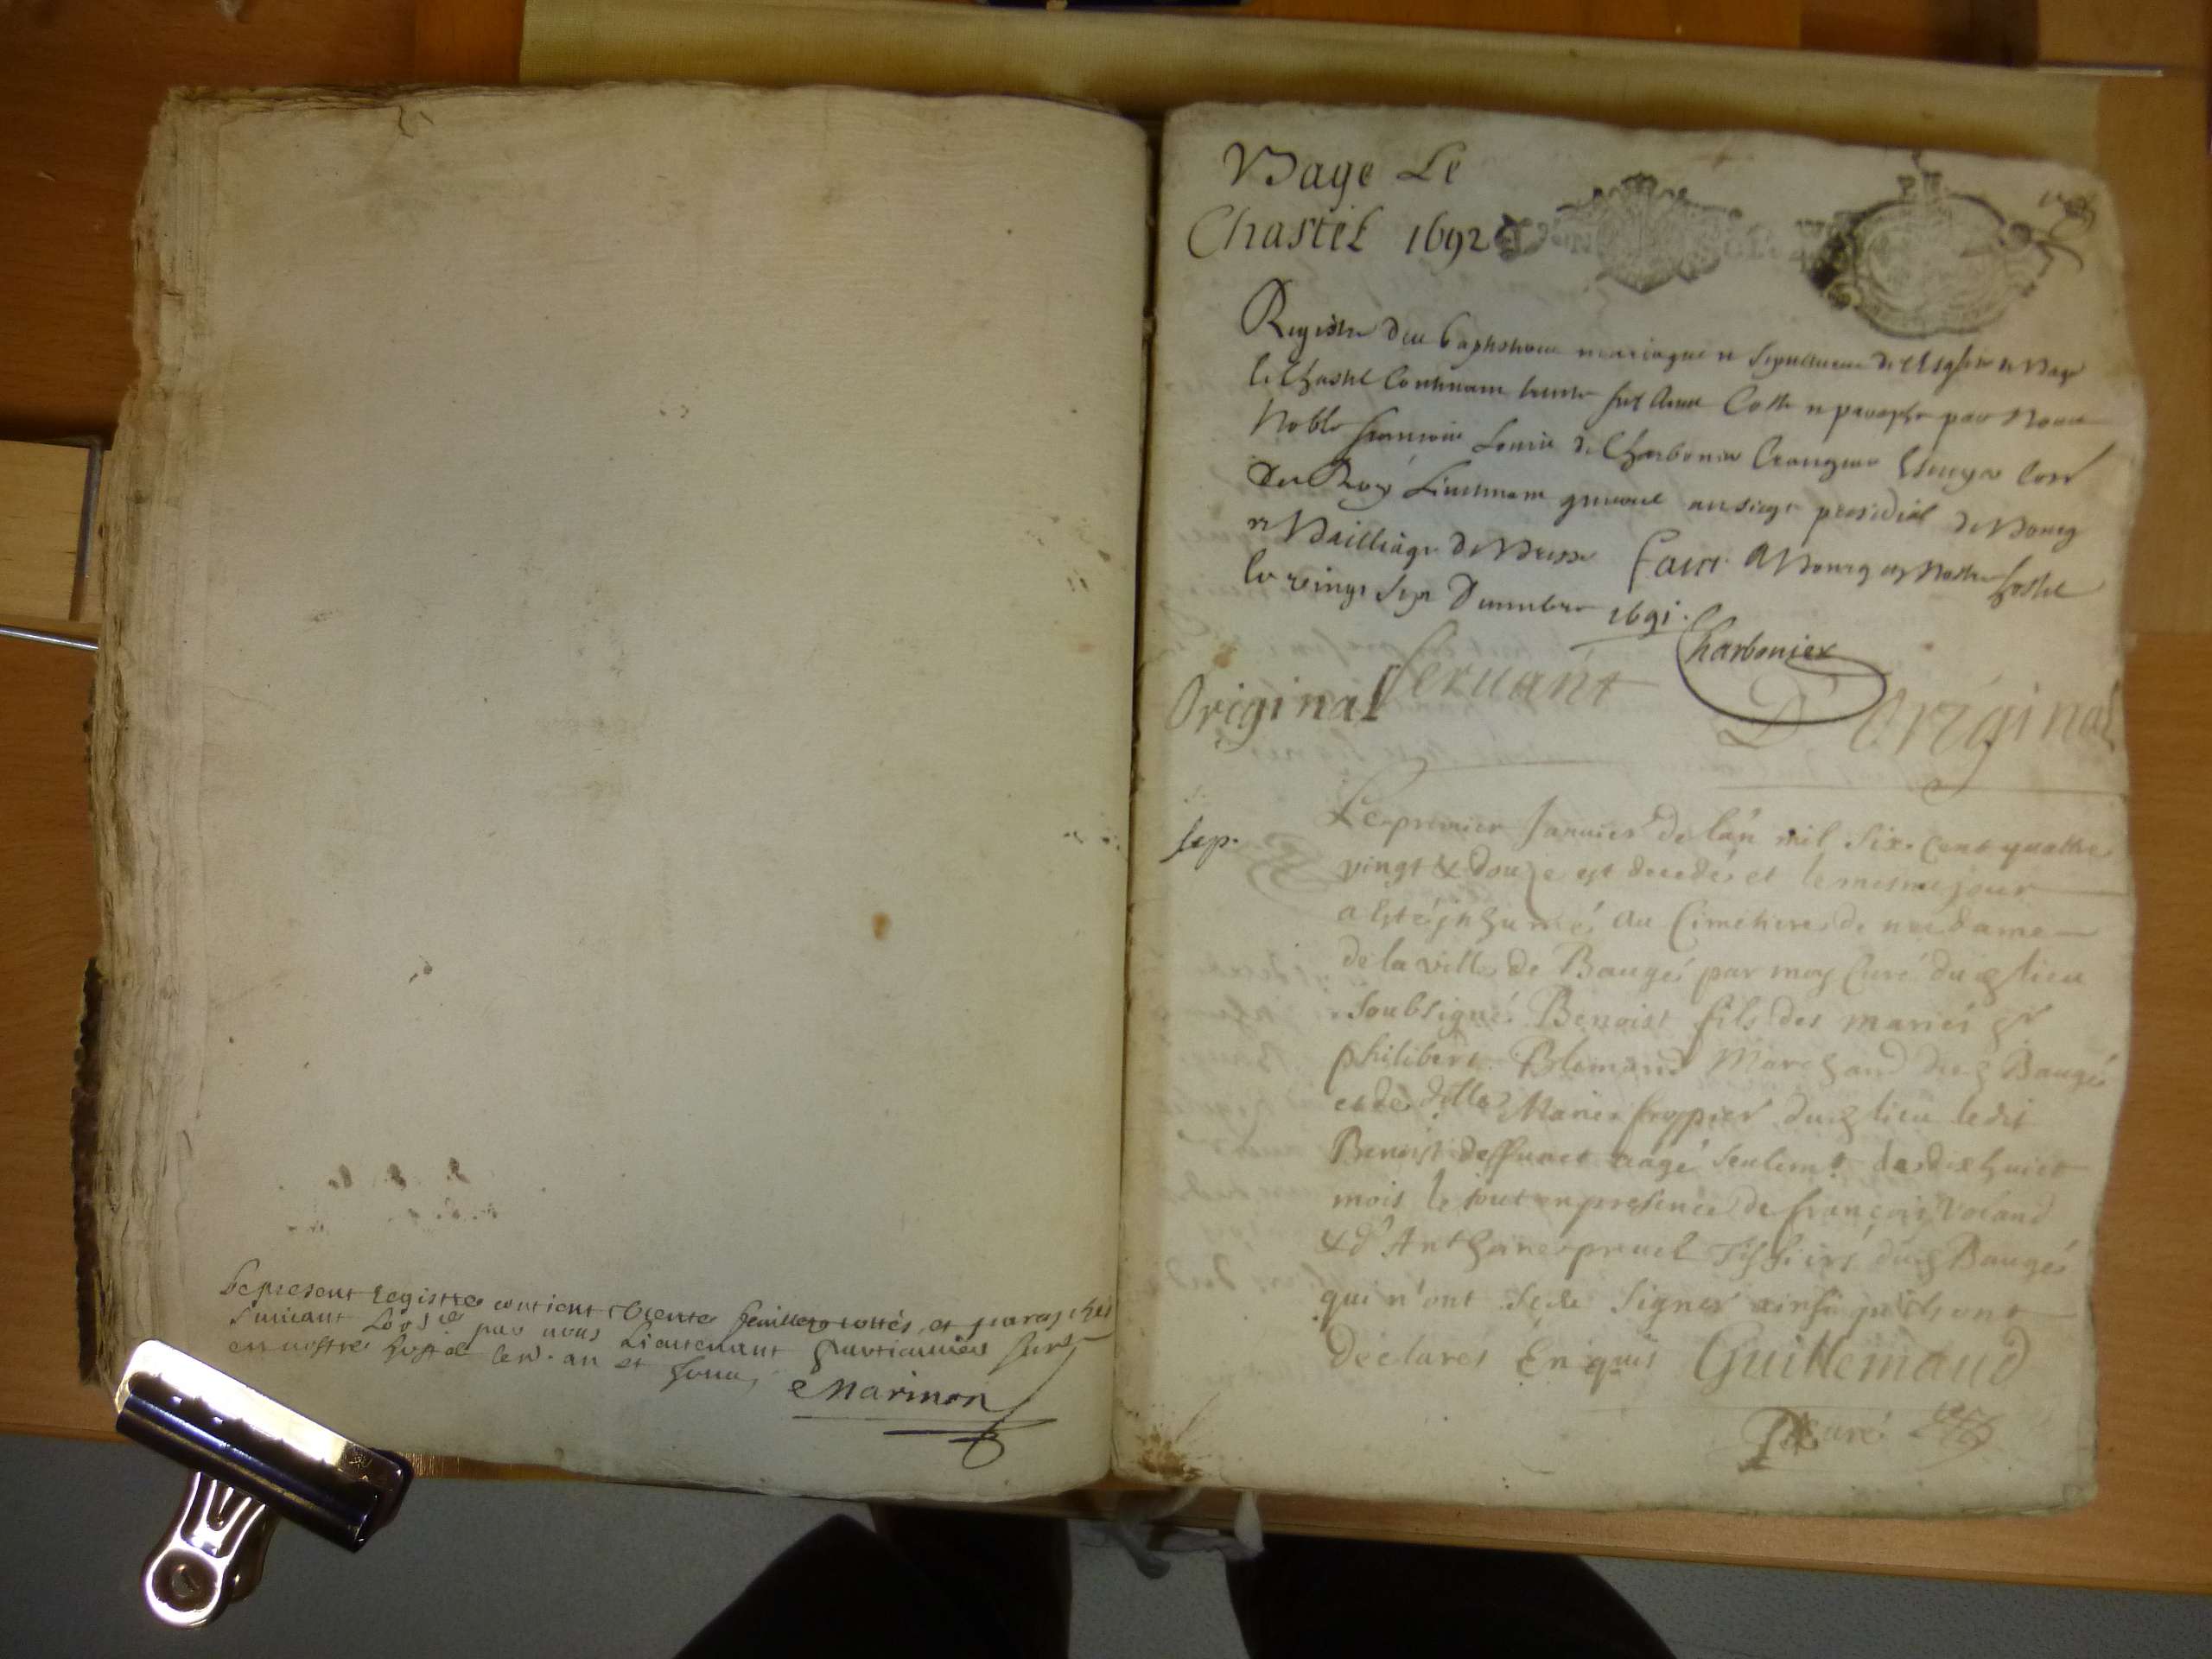 Le present registre contient trente feuillets cottés et paraphés
suivant par nous Lieutenant particulier
en nostre hostel an et
Marinon
Bage Le
Chastel 1692
Registre des baptesmes mariages et sepultures de l'Esglise de Bage
le Chastel Contenant trente six Cotte et paraphé par Nous
Noble françois Louis de Charbonier Crangeac Escuyer Conr
du Roy Lieutenant general au siege presidial de Bourg
et Bailliage de Bresse faict A Bourg en Nostre hostel
le vingt sept Decembre 1691.
Charbonier
Original Servant D'Original
sep.
Le premier Januier de lan mil six cent quattre
vingt & douze est decedés et le mesme jour
a esté inhumé au Cimetiere de nre dame
de la ville de Baugé par moy Curé dud lieu
soubsigné Benoist fils des mariés sr
philibert Blemand Marchand dud Baugé
et de dlle Marie froppier dud lieu ledit
Benoist deffunct aagé seulemt de dix huict
mois le tout en presence de françois Voland
& d'Anthoine pruel dud Baugé
qui n'ont sceu signer ainsi qu'ils ont
declarés Enquis Guillemaud
curé